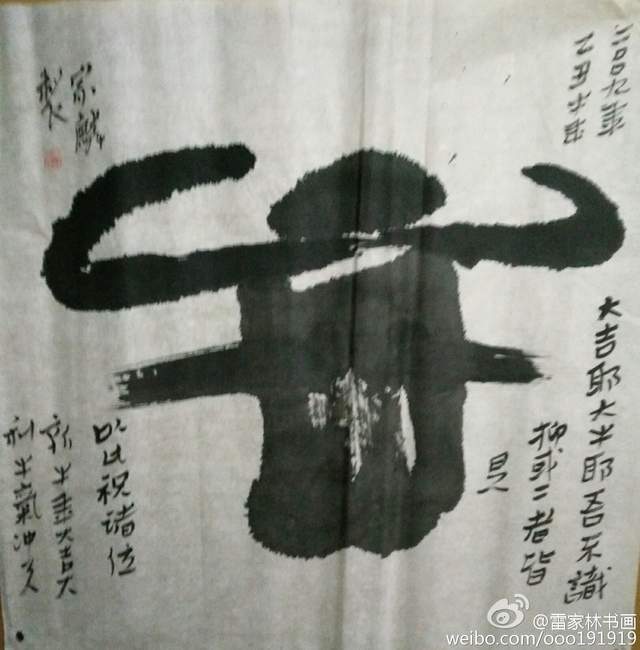 二〇〇九年
乙丑牛年
大吉耶大牛耶吾不識
抑或二者皆
是
以此祝诸位
新牛年大吉大
利牛氣沖天
家麟
製
@雷家林书画
weibo.com/ooo191919